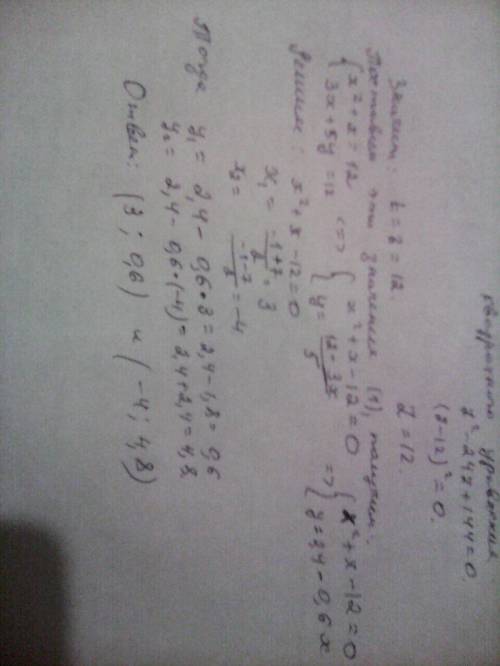 квадратного уравнения
z² - 24z + 144 = 0.
(z - 12)² = 0.
z = 12.
Значит: t = z = 12.
Поставем эти значения (1), получим:
{ x² + x = 12 { x² + x - 12 = 0 { x² + x - 12 = 0
{ 3x + 5y = 12 <=> { y = (12 - 3x)/5 => { y = 2,4 - 0,6x
Решим: x² + x - 12 = 0
x₁ = (-1+7)/2 = 3
x₂ = (-1-7)/2 = -4
Тогда y₁ = 2,4 - 0,6 • 3 = 2,4 - 1,8 = 0,6
y₂ = 2,4 - 0,6 • (-4) = 2,4 + 2,4 = 4,8
Ответ: (3; 0,6) и (-4; 4,8)